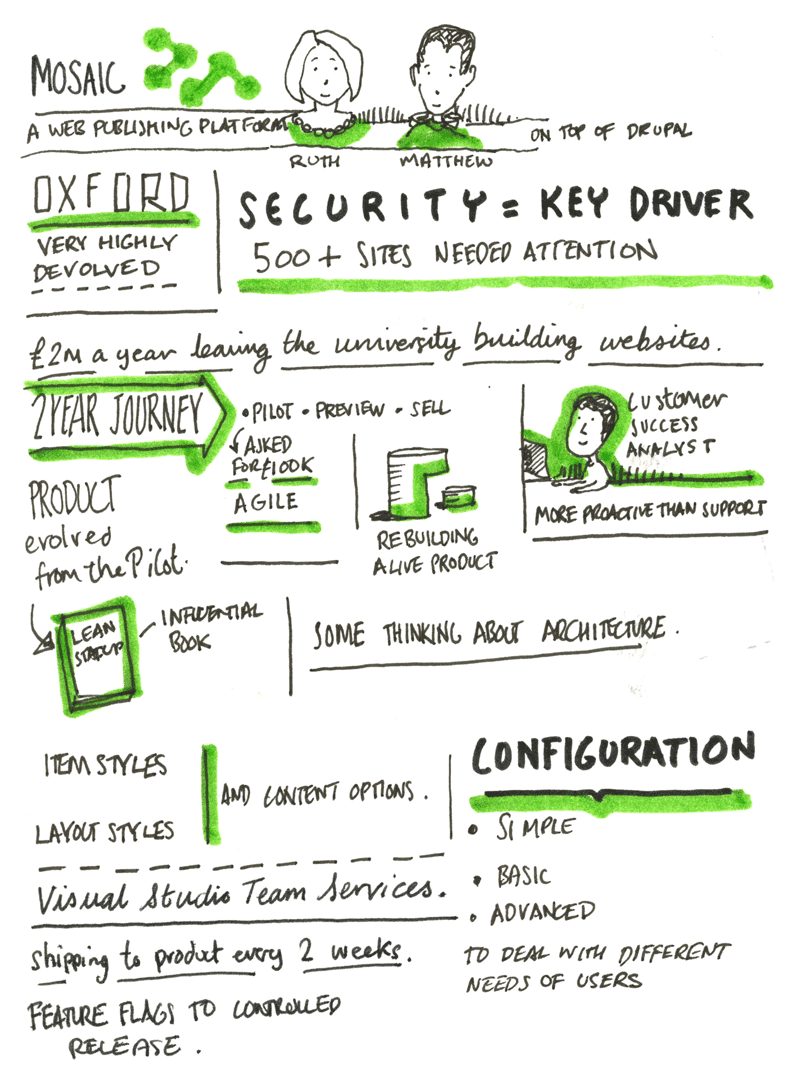 MOSAIC
A WEB PUBLISHING PLATFORM
ON TOP OF DRUPAL
RUTH
MATTHEW
OXFORD
VERY HIGHLY
DEVOLVED
SECURITY = KEY DRIVER
500+ SITES NEEDED ATTENTION
£2M a year leaving the university building websites.
2 YEAR JOURNEY
• PILOT • PREVIEW • SELL
ASKED
FOR £100K
AGILE
PRODUCT
evolved
from the Pilot.
REBUILDING
A LIVE PRODUCT
CUSTOMER
SUCCESS
ANALYST
MORE PROACTIVE THAN SUPPORT
LEAN
STARTUP
INFLUENTIAL
BOOK
SOME THINKING ABOUT ARCHITECTURE.
ITEM STYLES
LAYOUT STYLES
AND CONTENT OPTIONS.
CONFIGURATION
• SIMPLE
• BASIC
• ADVANCED
TO DEAL WITH DIFFERENT
NEEDS OF USERS
Visual Studio Team Services.
shipping to product every 2 weeks.
FEATURE FLAGS TO CONTROLLED
RELEASE.